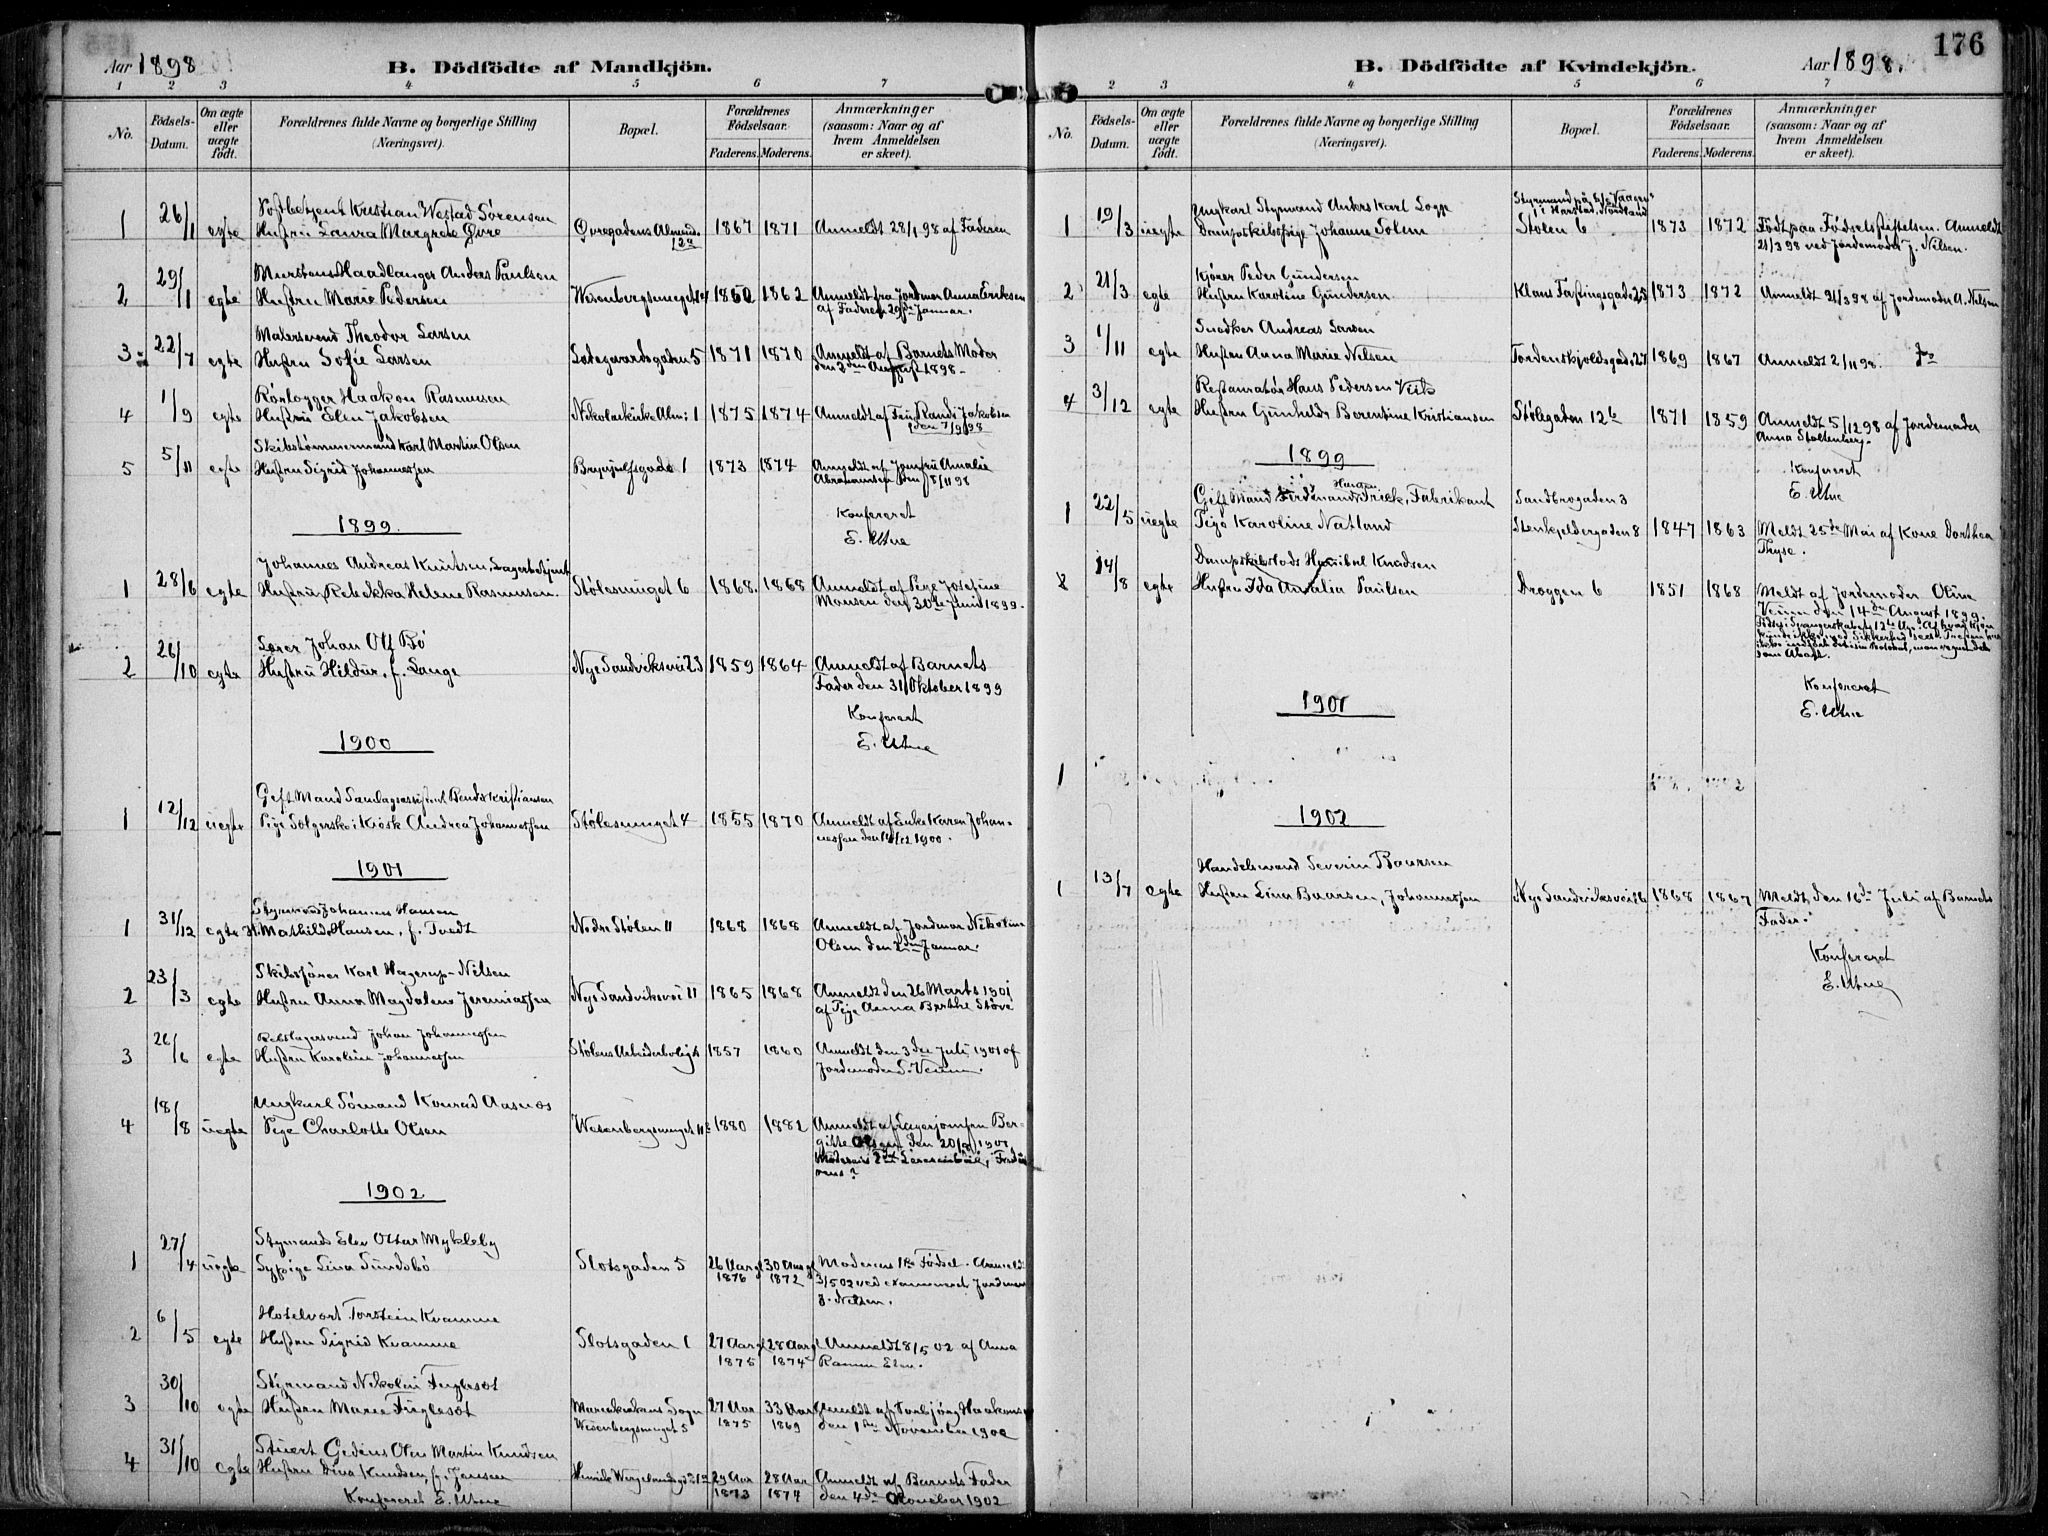 Aar 1898
B. Dödfödte af Mandkjön.
1 2 3 4 5 6 7
No. Födsels-Datum. Om ægte eller uægte födt. Forældrenes fulde Navne og borgerlige Stilling (Næringsvei). Bopæl. Forældrenes Födselsaar. Faderens. Moderens. Anmærkninger (saasom: Naar og af hvem Anmeldelsen er skeet).
Postbetjent Kristian Westad Sörensen
1 26/1 egte Hustru Laura Margrete Øvre Øvregadens Almend. 12a 1867 1871 Anmeldt 28/1 98 af Faderen
Murstens Haandlanger Anders Paulsen
2 29/1 egte Hustru Marie Pedersen Wesenbergsmuget 1862 Anmeldt fra Jordmor Anna Eriksen
af Faderen 29de Januar.
Malersvend Theodor Larsen
3 22/7 egte Hustru Sofie Larsen Ladegaardsgaden 5 1871 1870 Anmeldt af Barnets Moder
den 2den August 1898
Rørlægger Haakon Rasmussen
4 1/9 egte Hustru Elen Jakobsen Nikolaikirke Alm: 1 1875 1874 Anmeldt af Fru Randi Jakobsen
den 7/9 98
Skibstømmermand Karl Martin Olsen
5 5/11 egte Hustru Sigrid Johannessen Brynjulfsgade 1 1873 1874 Anmeldt af Jomfru Amalie
Abrahamsen den 8/11 98
Konfereret
E. Utne
1899.
Johannes Andreas Knudsen, Lagerbetjent
1 28/6 egte Hustru Rebekka Helene Rasmussen. Stølesmuget 6 1868. 1868 Anmeldt af Pige Josefine
Monsen den 30te Juni 1899.
Lærer Johan Olf Bö
2 26/10 egte Hustru Hildur, f. Lange Nye Sandviksvei 23 1859 1864 Anmeldt af Barnets
Fader den 31 Oktober 1899
Konfereret
E. Utne
1900
Gift Mand Samlagsassistent Bendix Kristiansen
1 12/12 uegte Pige Sælgerske i Kiosk Andrea Johannessen Stølesmuget 4 1855 1870 Anmeldt af Enke Karen Johan-
nessen den 14/12 1900.
1901
Styrmand Johannes Hansen
1 31/12 egte H. Mathilde Hansen, f. Tvedt Nedre Stølen 11 1868 1868 Anmeldt af Jordmor Nikoline
Olsen den 2den Januar.
Skibsfører Karl Hagerup-Nilsen
2 23/3 egte Hustru Anna Magdalene Jeremiassen Nye Sandviksvei 11 1865 1868 Anmeldt den 26 Marts 1901
af Pige Anna Berthe Støve
Rebslagersvend Johan Johannessen
3 26/6 egte Hustru Karoline Johannessen Stølens Arbeiderbolig 1857 1860 Anmeldt den 3die Juli 1901 af
Jordemoder S. Venum.
Ungkarl Sömand Konrad Aasnes
4 18/8 uegte Pige Charlotte Olsen Wesenbergsmuget 11 1880 1882 Anmeldt af Lagerjomfru Ber-
gitte Olsen den 20/8 1901
Moderens
1902
Styrmands Elev Ottar Mykleby
1 27/4 uegte Sypige Lina Sundsbö Slotsgaden 5 26 Aar gl 1876 30 Aar gl 1872 Moderens 1ste Fødsel. Anmeldt
3/5 02 ved
J. Nilsen.
Hotelvert Torstein Kvamme
2 6/5 egte Hustru Sigrid Kvamme Slotsgaden 1 27 Aar gl 1875 28 Aar gl 1874 Anmeldt 8/5 02 af Anna
Styrmand Nikolai Fuglesøt
3 30/10 egte Hustru Marie Fuglesøt Mariakirkens Sogn 27 Aar 1875 33 Aar 1869 Anmeldt af Torbjörg Haakons
Wesenbergsmuget 5 den 1ste November 1902
Stuert Gedeus Olai Martin Knudsen
4 31/10 egte Hustru Dina Knudsen, f. Jensen Henrik Wergelandsgd 29 Aar 1873 28 Aar 1874 Anmeldt af Barnets Fader
den 4de November 1902
Konfereret E. Utne
176
B. Dödfödte af Kvindekjön.
Aar 1898.
2 3 4 5 6 7
No. Födsels-Datum. Om ægte eller uægte födt. Forældrenes fulde Navne og borgerlige Stilling (Næringsvei). Bopæl. Forældrenes Födselsaar. Faderens. Moderens. Anmærkninger (saasom: Naar og af hvem Anmeldelsen er skeet).
Ungkarl Styrmand Anders Karl Logge Styrmand på
i Harstad, Nordland
1 19/3 uegte Dampskibspige Johanne Solem Stølen 6 1873 1872 Født paa Fødselsstiftelsen. Anmeldt
21/3 98 ved Jordemoder J. Nilsen.
Kjører Peder Gundersen
2 21/3 egte Hustru Karoline Gundersen Klaus Fastingsgade 25 1873 1872 Anmeldt 21/3 98 af Jordemoder A. Nilsen
Snedker Andreas Larsen
3 1/11 egte Hustru Anna Marie Nilsen Tordenskjoldsgad. 27 1869 1867 Anmeldt 2/11 98.
Restauratør Hans Pedersen Viik
4 3/12 egte Hustru Gunhilde Berentine Kristiansen Stølegaden 12b 1871 1859 Anmeldt 5/12 98 af Jordemoder
Anna Stoltenberg.
1899
Konfereret
E. Utne
Gift Mand Ferdinand Hansen Frick, Fabrikant Sandbrogaden 3
1 22/5 uegte Pige Karoline Natland Stenkjeldergaden 8 1847 1863 Meldt 25de Mai af Kone Dorthea
Thyse.
Dampskibslods Hanibal Knudsen
2 14/8 egte Hustru Ida Amalia Paulsen Dræggen 6 1851 1868 Meldt af Jordemoder Oline
Venum den 14de August 1899
som Abort.
Konfereret
E. Utne
1901
1
1902
Handelsmand Severin Baarsen
1 13/7 egte Hustru Lina Baarsen, Johannessen Nye Sandviksvei 26 1868 1867 Meldt, den 16de Juli af Barnets
Fader.
Konfereret
E. Utne